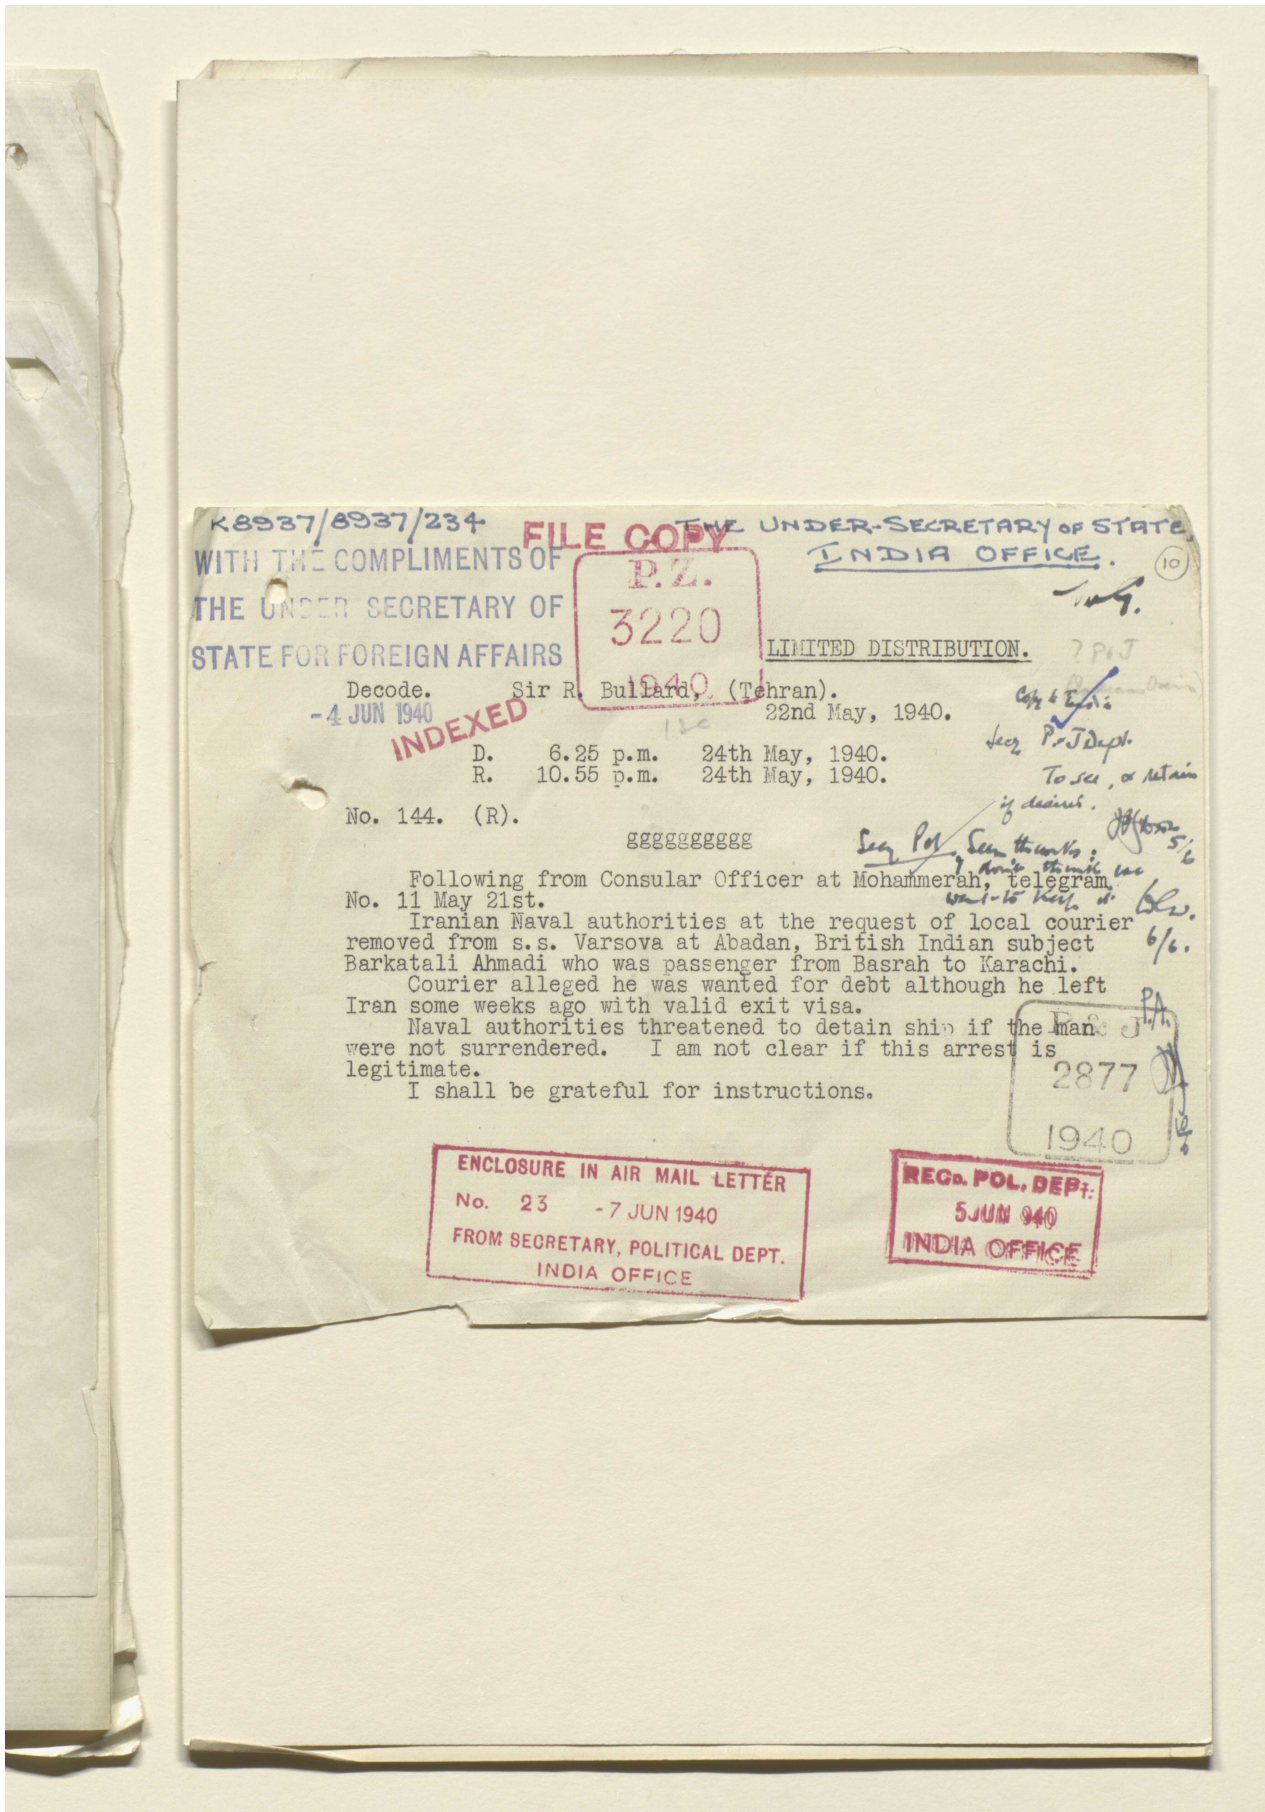 K8937/8937/234
FILE COPY
THE UNDER-SECRETARY OF STATE,
INDIA OFFICE.
10
WITH THE COMPLIMENTS OF
THE UNDER SECRETARY OF
STATE FOR FOREIGN AFFAIRS
-4 JUN 1940
P.Z.
3220
1940
INDEXED
LIMITED DISTRIBUTION.
? P & J
Decode. Sir R. Bullard, (Tehran).
22nd May, 1940.
D. 6.25 p.m. 24th May, 1940.
R. 10.55 p.m. 24th May, 1940.
No. 144. (R).
gggggggggg
Copy to India
Secy P. & J Dept.
To see, & retain
if desired.
5/6
Secy Pol. Seen thanks:
I don't think we
want to keep it
6/6.
P.A.
Following from Consular Officer at Mohammerah, telegram
No. 11 May 21st.
Iranian Naval authorities at the request of local courier
removed from s.s. Varsova at Abadan, British Indian subject
Barkatali Ahmadi who was passenger from Basrah to Karachi.
Courier alleged he was wanted for debt although he left
Iran some weeks ago with valid exit visa.
Naval authorities threatened to detain ship if the man
were not surrendered. I am not clear if this arrest is
legitimate.
I shall be grateful for instructions.
P & J
2877
1940
ENCLOSURE IN AIR MAIL LETTER
No. 23 -7 JUN 1940
FROM SECRETARY, POLITICAL DEPT.
INDIA OFFICE
REGD. POL. DEPT.
5 JUN 940
INDIA OFFICE